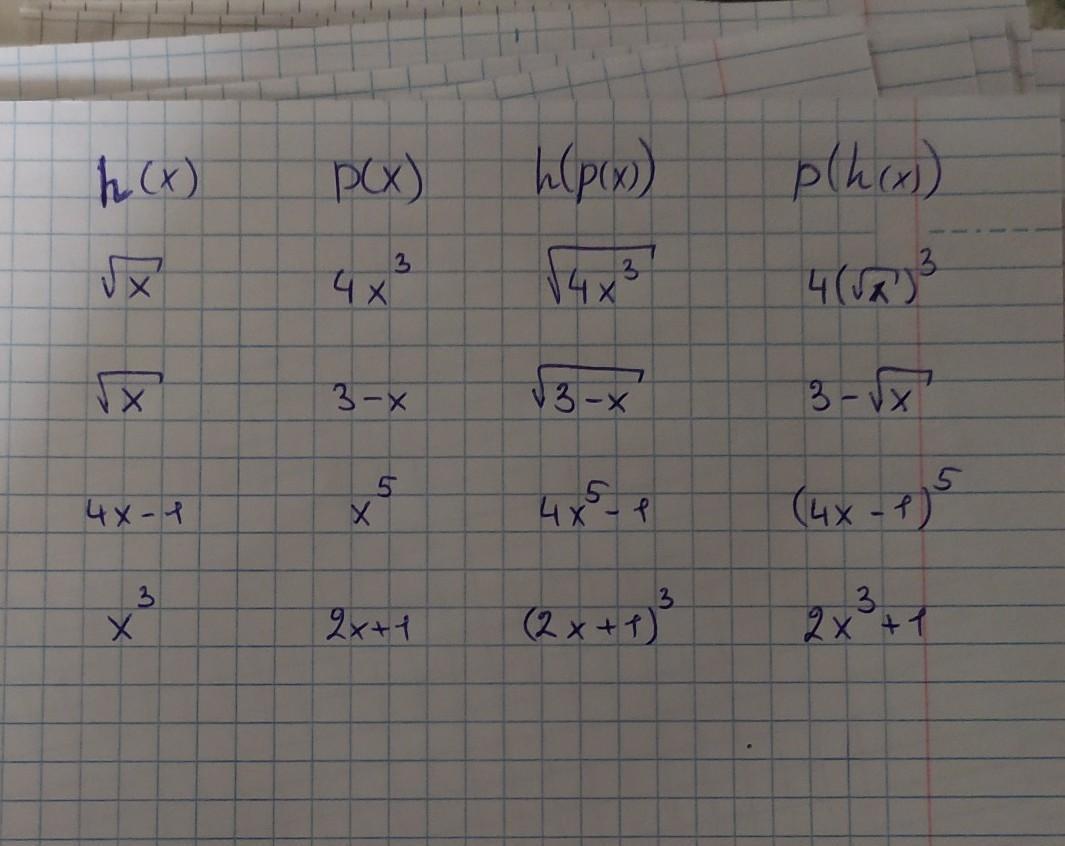 h(x) p(x) h(p(x)) p(h(x))
√x 4x³ √(4x³) 4(√x)³
√x 3-x √(3-x) 3-√x
4x-1 x⁵ 4x⁵-1 (4x-1)⁵
x³ 2x+1 (2x+1)³ 2x³+1